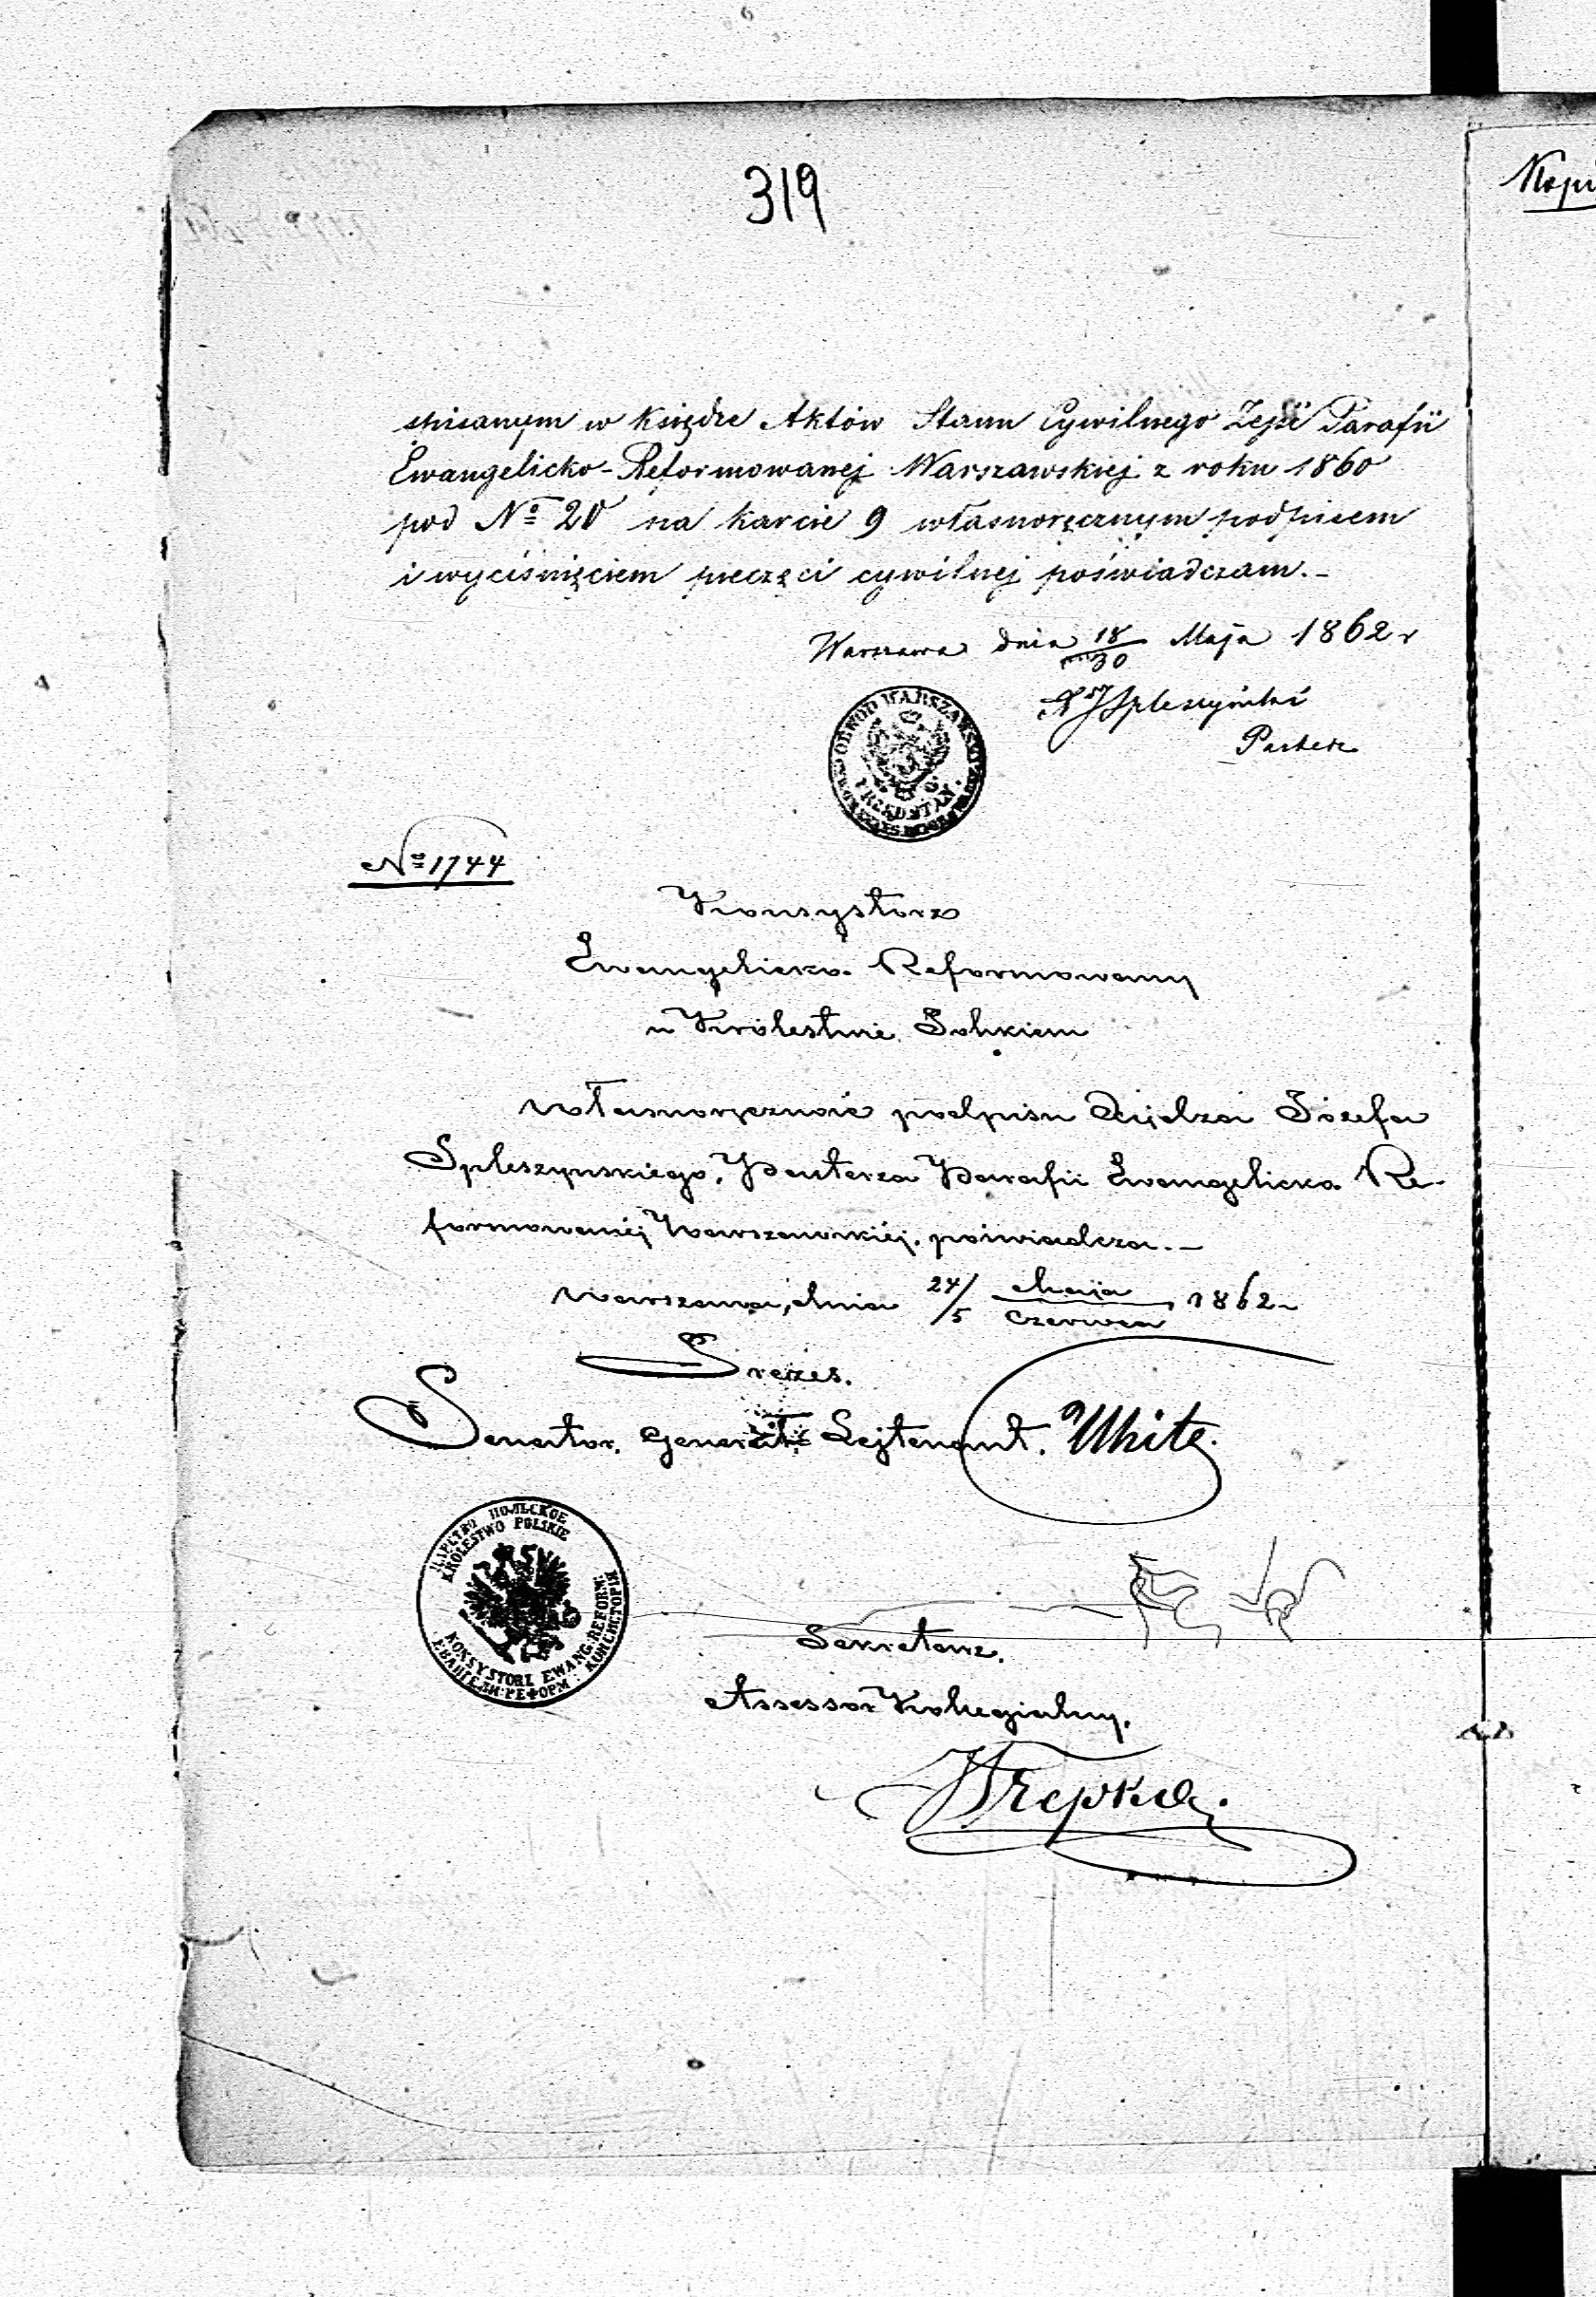 319
spisanym w Księdze Aktów Stanu Cywilnego Tejże Parafii
Ewangelicko-Reformowanej Warszawskiej z roku 1860
pod No 20 na karcie 9 własnoręcznym podpisem
i wyciśnięciem pieczęci cywilnej poświadczam.-
Warszawa dnia 18/30 Maja 1862 r
X J Spleszyński
Pasterz
OBWÓD WARSZAWSKI
URZĘD STAN
No 1744
Konsystorz
Ewangelicko-Reformowany
w Królestwie Polskiem
własnoręczność podpisu Księdza Józefa
Spleszyńskiego, Pasterza Parafii Ewangelicko Re-
formowanéj Warszawskiéj, poświadcza.-
Warszawa, dnia 24/5 Maja/Czerwca 1862
Prezes.
Senator, Generał Lejtenant, White.
ЦАРСТВО ПОЛЬСКОЕ
KRÓLESTWO POLSKIE
KONSYSTORZ EWANG: REFORM:
ЕВАНГЕЛИ: РЕФОРМ: КОНСИСТОРІЯ
Sekretarz,
Assessor Kollegialny,